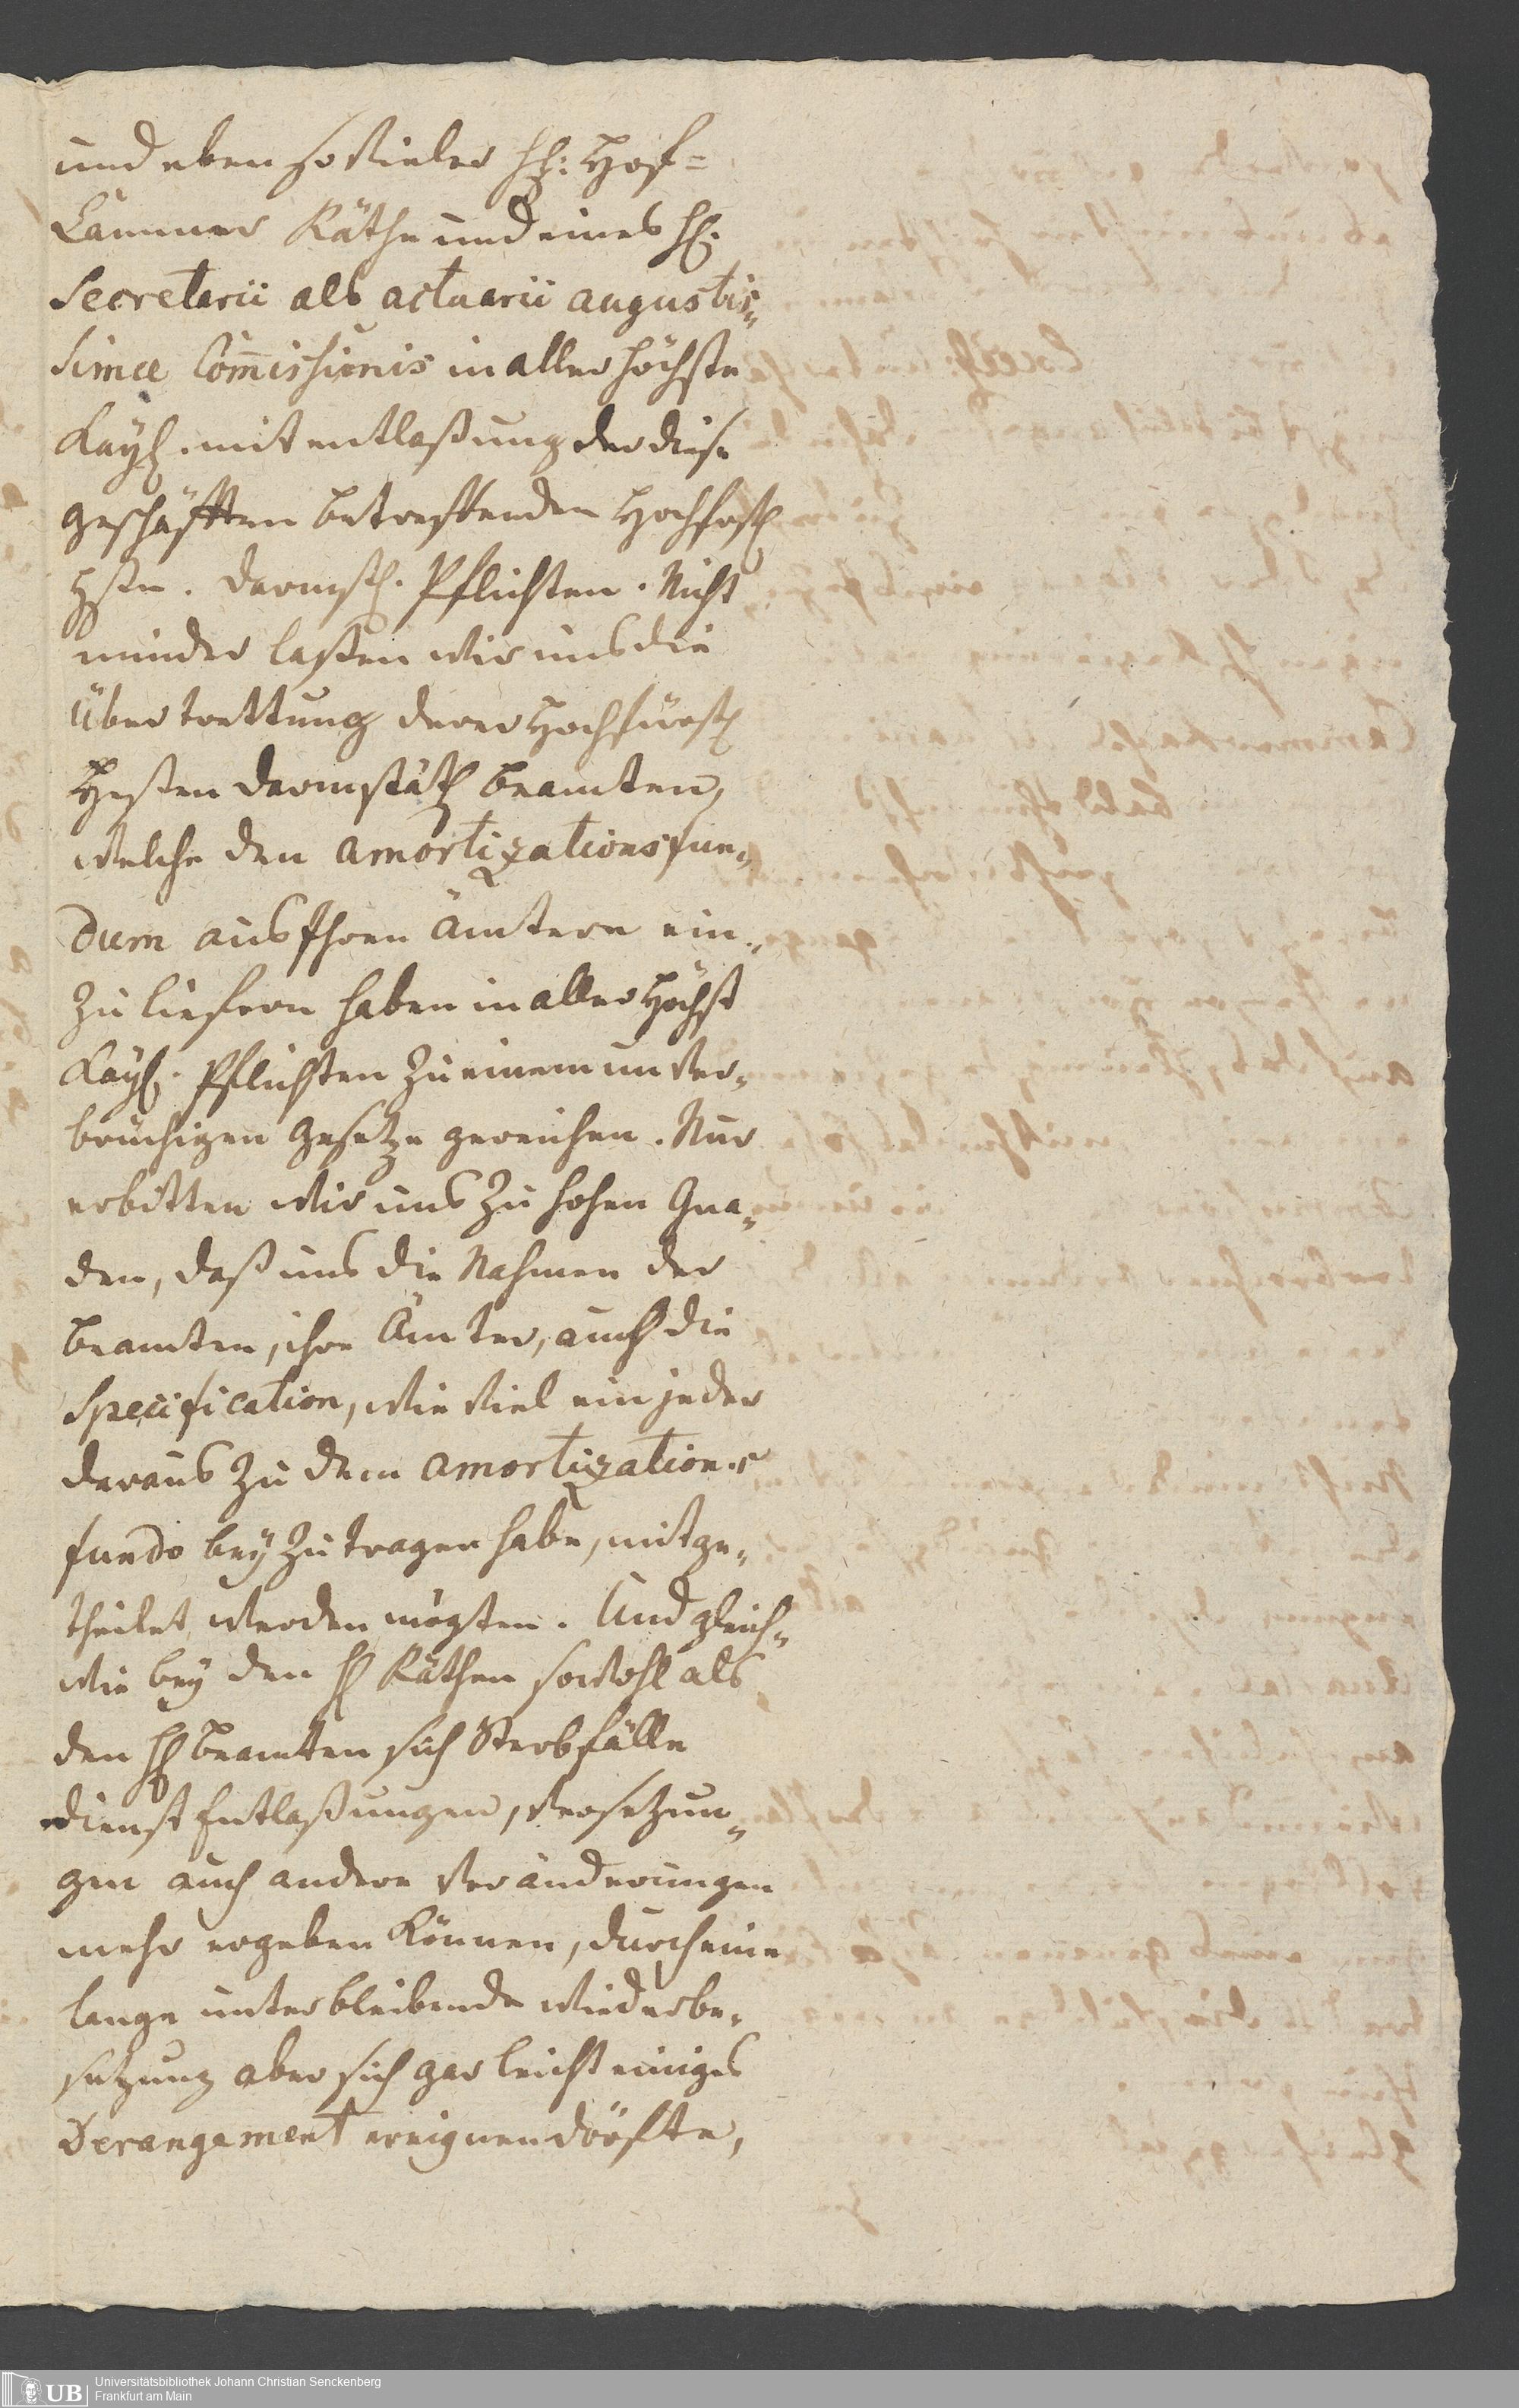 und eben so vieler HH: Hof=
Cammer Räthe und eines H.
Secretarii als actuarii augustis„
simae Commissionis in aller höchste
Kayß. mit entlaßung der diese
geschäfften betreffenden Hochfürstl
Heßen. Darmstl. Pflichten. Nicht
minder laßen wir uns die
Übertrettung derer Hochfürstl
Heßen Darmstätl Beamten,
welche den amortizationsfun„
dum aus Ihren ämtern ein„
zu liefern haben in aller Höchst
Kayß. Pflichten zu einem unver„
brüchigen Gesetze gereichen. Nur
erbitten wir uns zu hohen Gna„
den, daß uns die Nahmen der
Beamten, ihre Ämter, auch die
Specification, wie viel ein jeder
daraus zu dem amortizations
fundo bey zu tragen habe, mitge„
theilet werden mögten. Und gleich„
wie bey den H Räthen sowohl als
den HH Beamten sich Sterbfälle
dienst Entlaßungen, Versetzun„
gen auch andere Veränderungen
mehr ergeben können, durch eine
lange unterbleibende Wiederbe„
setzung aber sich gar leicht einiges
Derangement ereignen dörfte,
UB
Universitätsbibliothek Johann Christian Senckenberg
Frankfurt am Main